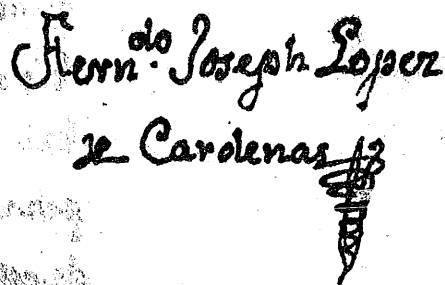 Fern.do Joseph Lopez
de Cardenas